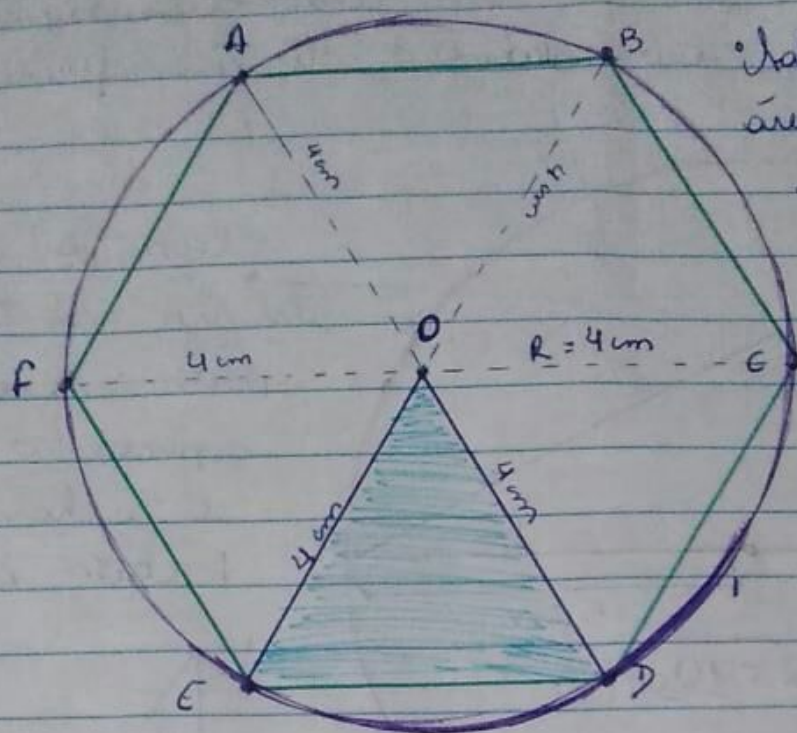 A
B
ár
4 cm
4 cm
O
F
4 cm
R = 4 cm
C
4 cm
4 cm
E
D